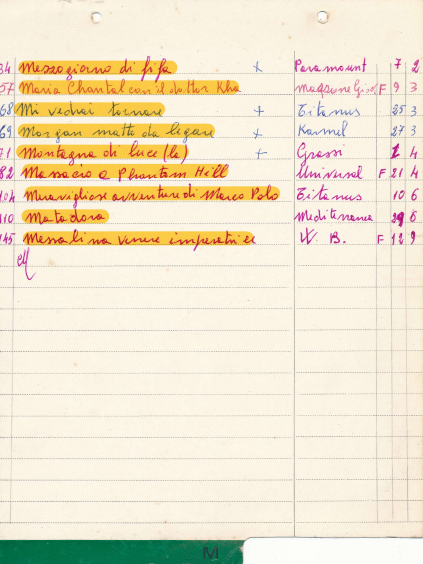 34 Mezzogiorno di fifa x Paramount 7 2
57 Maria Chantal con il dottor Kha F 9 3
68 Mi vedrai tornare + Titanus 25 3
69 Morgan matto da legare + Karmel 27 3
71 Montagna di luce (la) + Grassi 1 4
82 Massacro a Phantom Hill Universal F 21 4
104 Meravigliose avventure di Marco Polo Titanus 10 6
110 Matadora Mediterranea 29 6
145 Messalina venere imperatrice W. B. F 12 9
M